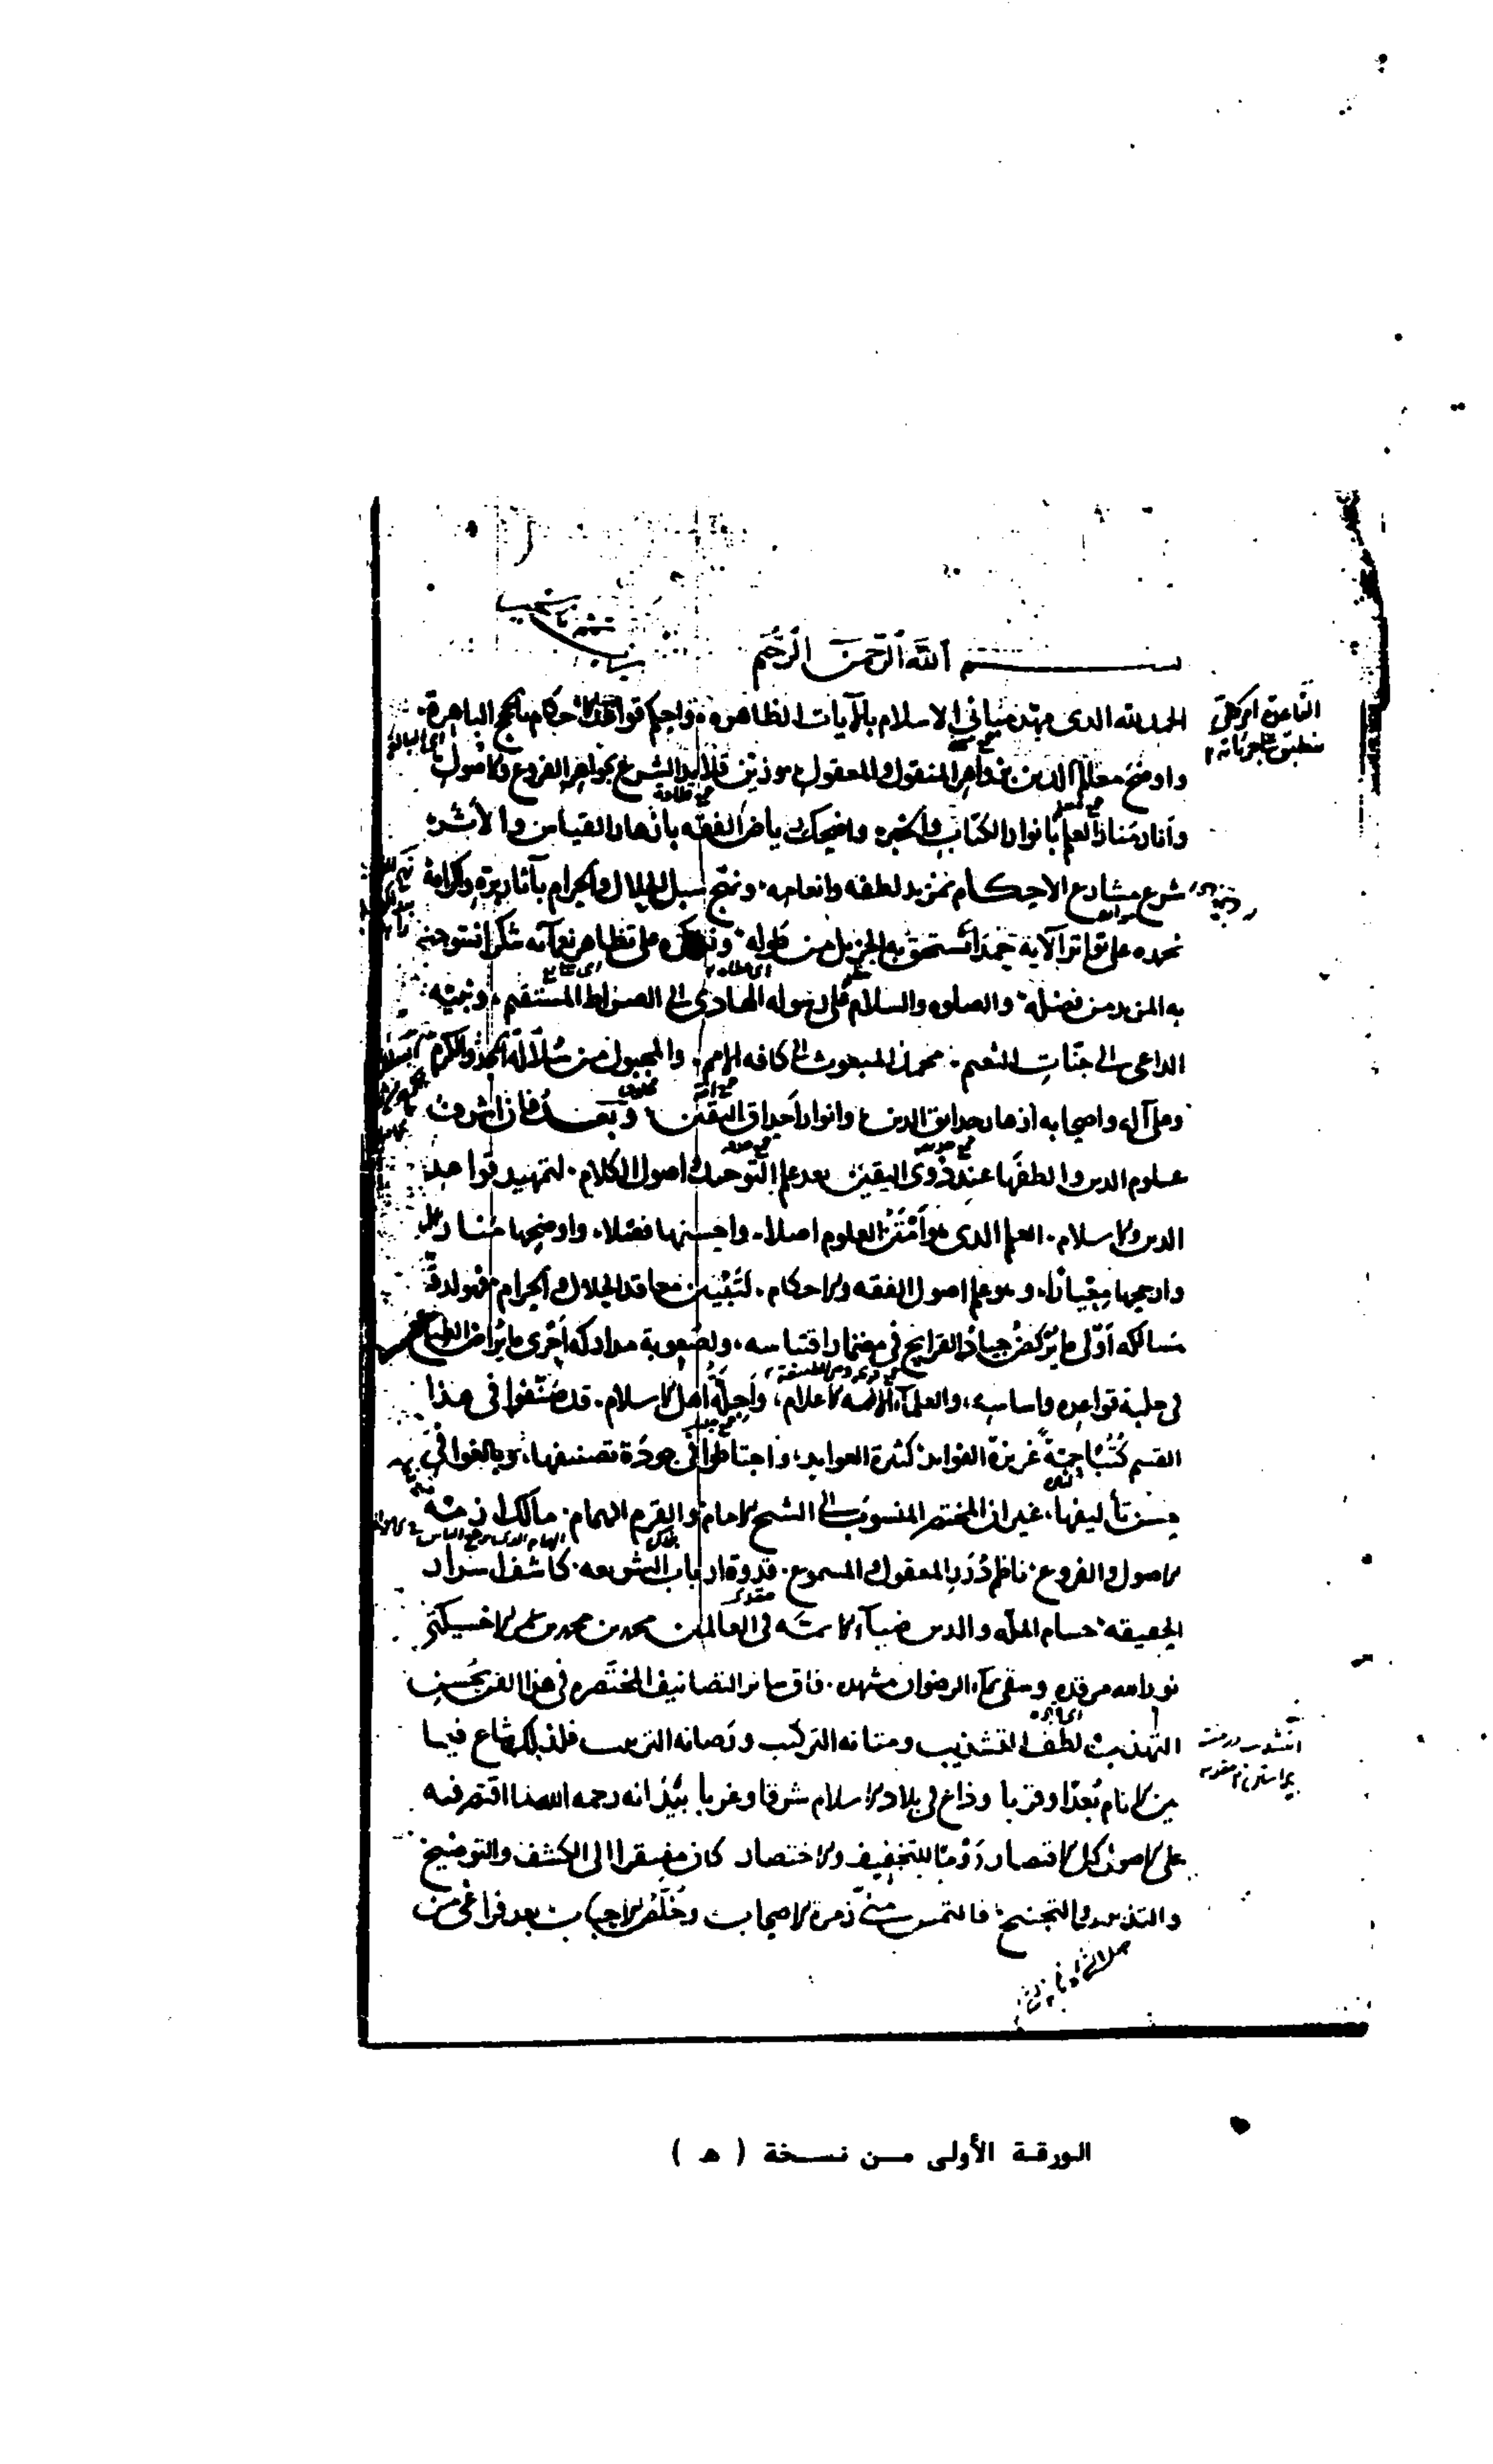 بسم الله الرحمن الرحيم
الحمد لله الذى مهد مبانى الاسلام بالآيات الظاهرة واحكم قواعد الاحكام بالحجج الباهرة
القاعدة امر كلى
منطبق على جزئياته
واوضح معالم الدين بزواهر المنقول والمعقول وزين قلايد الشرع بجواهر الفروع والاصول
وانار منار العلم بانوار الكتاب والخبر واضحك رياض الفقه بازهار القياس والأثر
شرع مشارع الاحكام بمزيد لطفه وانعامه ونهج سبل الحلال والحرام بآثار بره واكرامه
نحمده على تواتر آلايه حمدا نستحق به الجزيل من طوله ونشكره على تظاهر نعمآئه شكرا نستوجب
به المزيد من فضله والصلوه والسلام على رسوله الهادى الى الصراط المستقيم ونبيه
الداعى الى جنات النعيم محمد المبعوث الى كافه الامم والمجبول من سلالة المجد والكرم
وعلى آله واصحابه ازهار حدايق الدين وانوار احداق اليقين وبعد فان اشرف
علوم الدين والطفها عند ذوى اليقين بعد علم التوحيد اصول الكلام لتمهيد قواعد
الدين والاسلام العلم الذى هو امتن العلوم اصلا واحسنها فضلا واوضحها منارا
وارجحها معيارا وهو علم اصول الفقه والاحكام لتبيين معاقد الحلال والحرام فهو لدقة
مسالكه اولى ما يركض جياد القرايح فى مضمار اقتباسه ولصعوبة مداركه احرى ما يراض الطبايع
فى حلبة قواعده واساسه والعلمآء الائمه الاعلام واجلة اهل الاسلام قد صنفوا فى هذا
القسم كتبا جمة غزيرة الفوايد كثيرة العوايد واحتاطوا فى جودة تصنيفها وبالغوا فى
حسن تأليفها غير ان المختصر المنسوب الى الشيخ الامام والقرم الهمام مالك ازمة
الاصول والفروع ناظم درر المعقول والمسموع قدوة ارباب الشريعه كاشف اسرار
الحقيقه حسام المله والدين ضيآء الائمه فى العالمين محمد بن محمد بن عمر الاخسيكتى
نور الله مرقده وسقى بمآء الرضوان مشهده فاق ساير التصانيف المختصره فى هذا الفن بحسن
التهذيب ولطف التشذيب ومتانه التركيب ورصانه الترتيب فلذلك شاع فيما
بين الانام بعدا وقربا وذاع فى بلاد الاسلام شرقا وغربا بيد انه رحمه الله لما اقتصر فيه
على الاصول كل الاقتصار روما للتخفيف والاختصار كان مفتقرا الى الكشف والتوضيح
والتنقيح فالتمس منى زمرة الاصحاب وخلص الاحباب بعد فراغى من
الورقة الأولى من نسخة ( هـ )